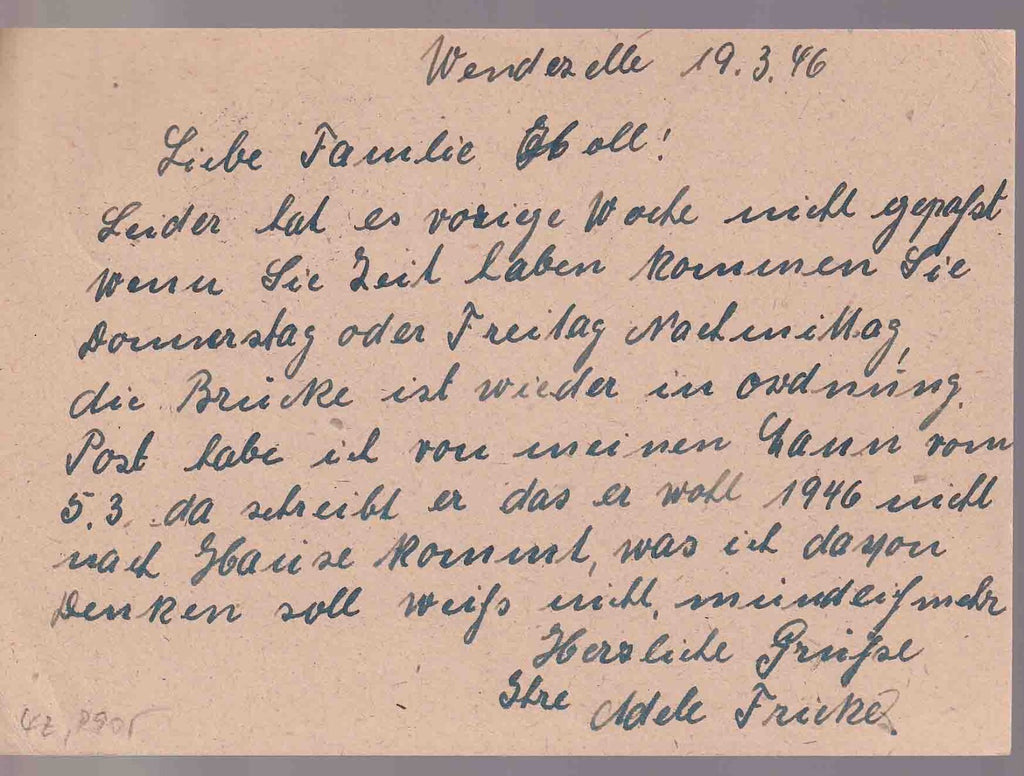 Wendezelle 19.3.46
Liebe Familie Eboll!
Leider hat es vorige Woche nicht gepaßt
wenn Sie Zeit haben kommen Sie
Donnerstag oder Freitag Nachmittag,
die Brücke ist wieder in ordnung.
Post habe ich von meinen Mann vom
5.3. da schreibt er das er wohl 1946 nicht
nach Hause kommt, was ich davon
Denken soll weiß nicht, mündlich mehr
Herzliche Grüße
Ihre Adele Fricke